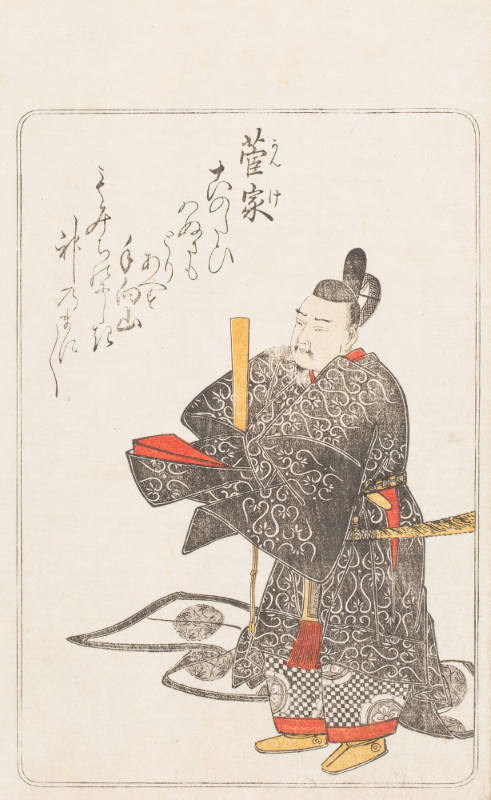 菅家
かんけ
このたひ
はぬさも
とり
あへす
手向山
もみちのにしき
神のまに〳〵